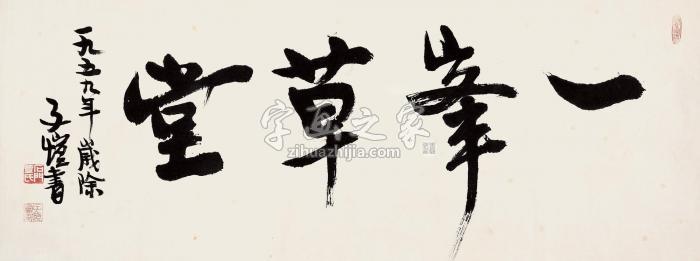 一峯草堂
一九五九年歲除
子愷書
字画之家
zihuazhijia.com